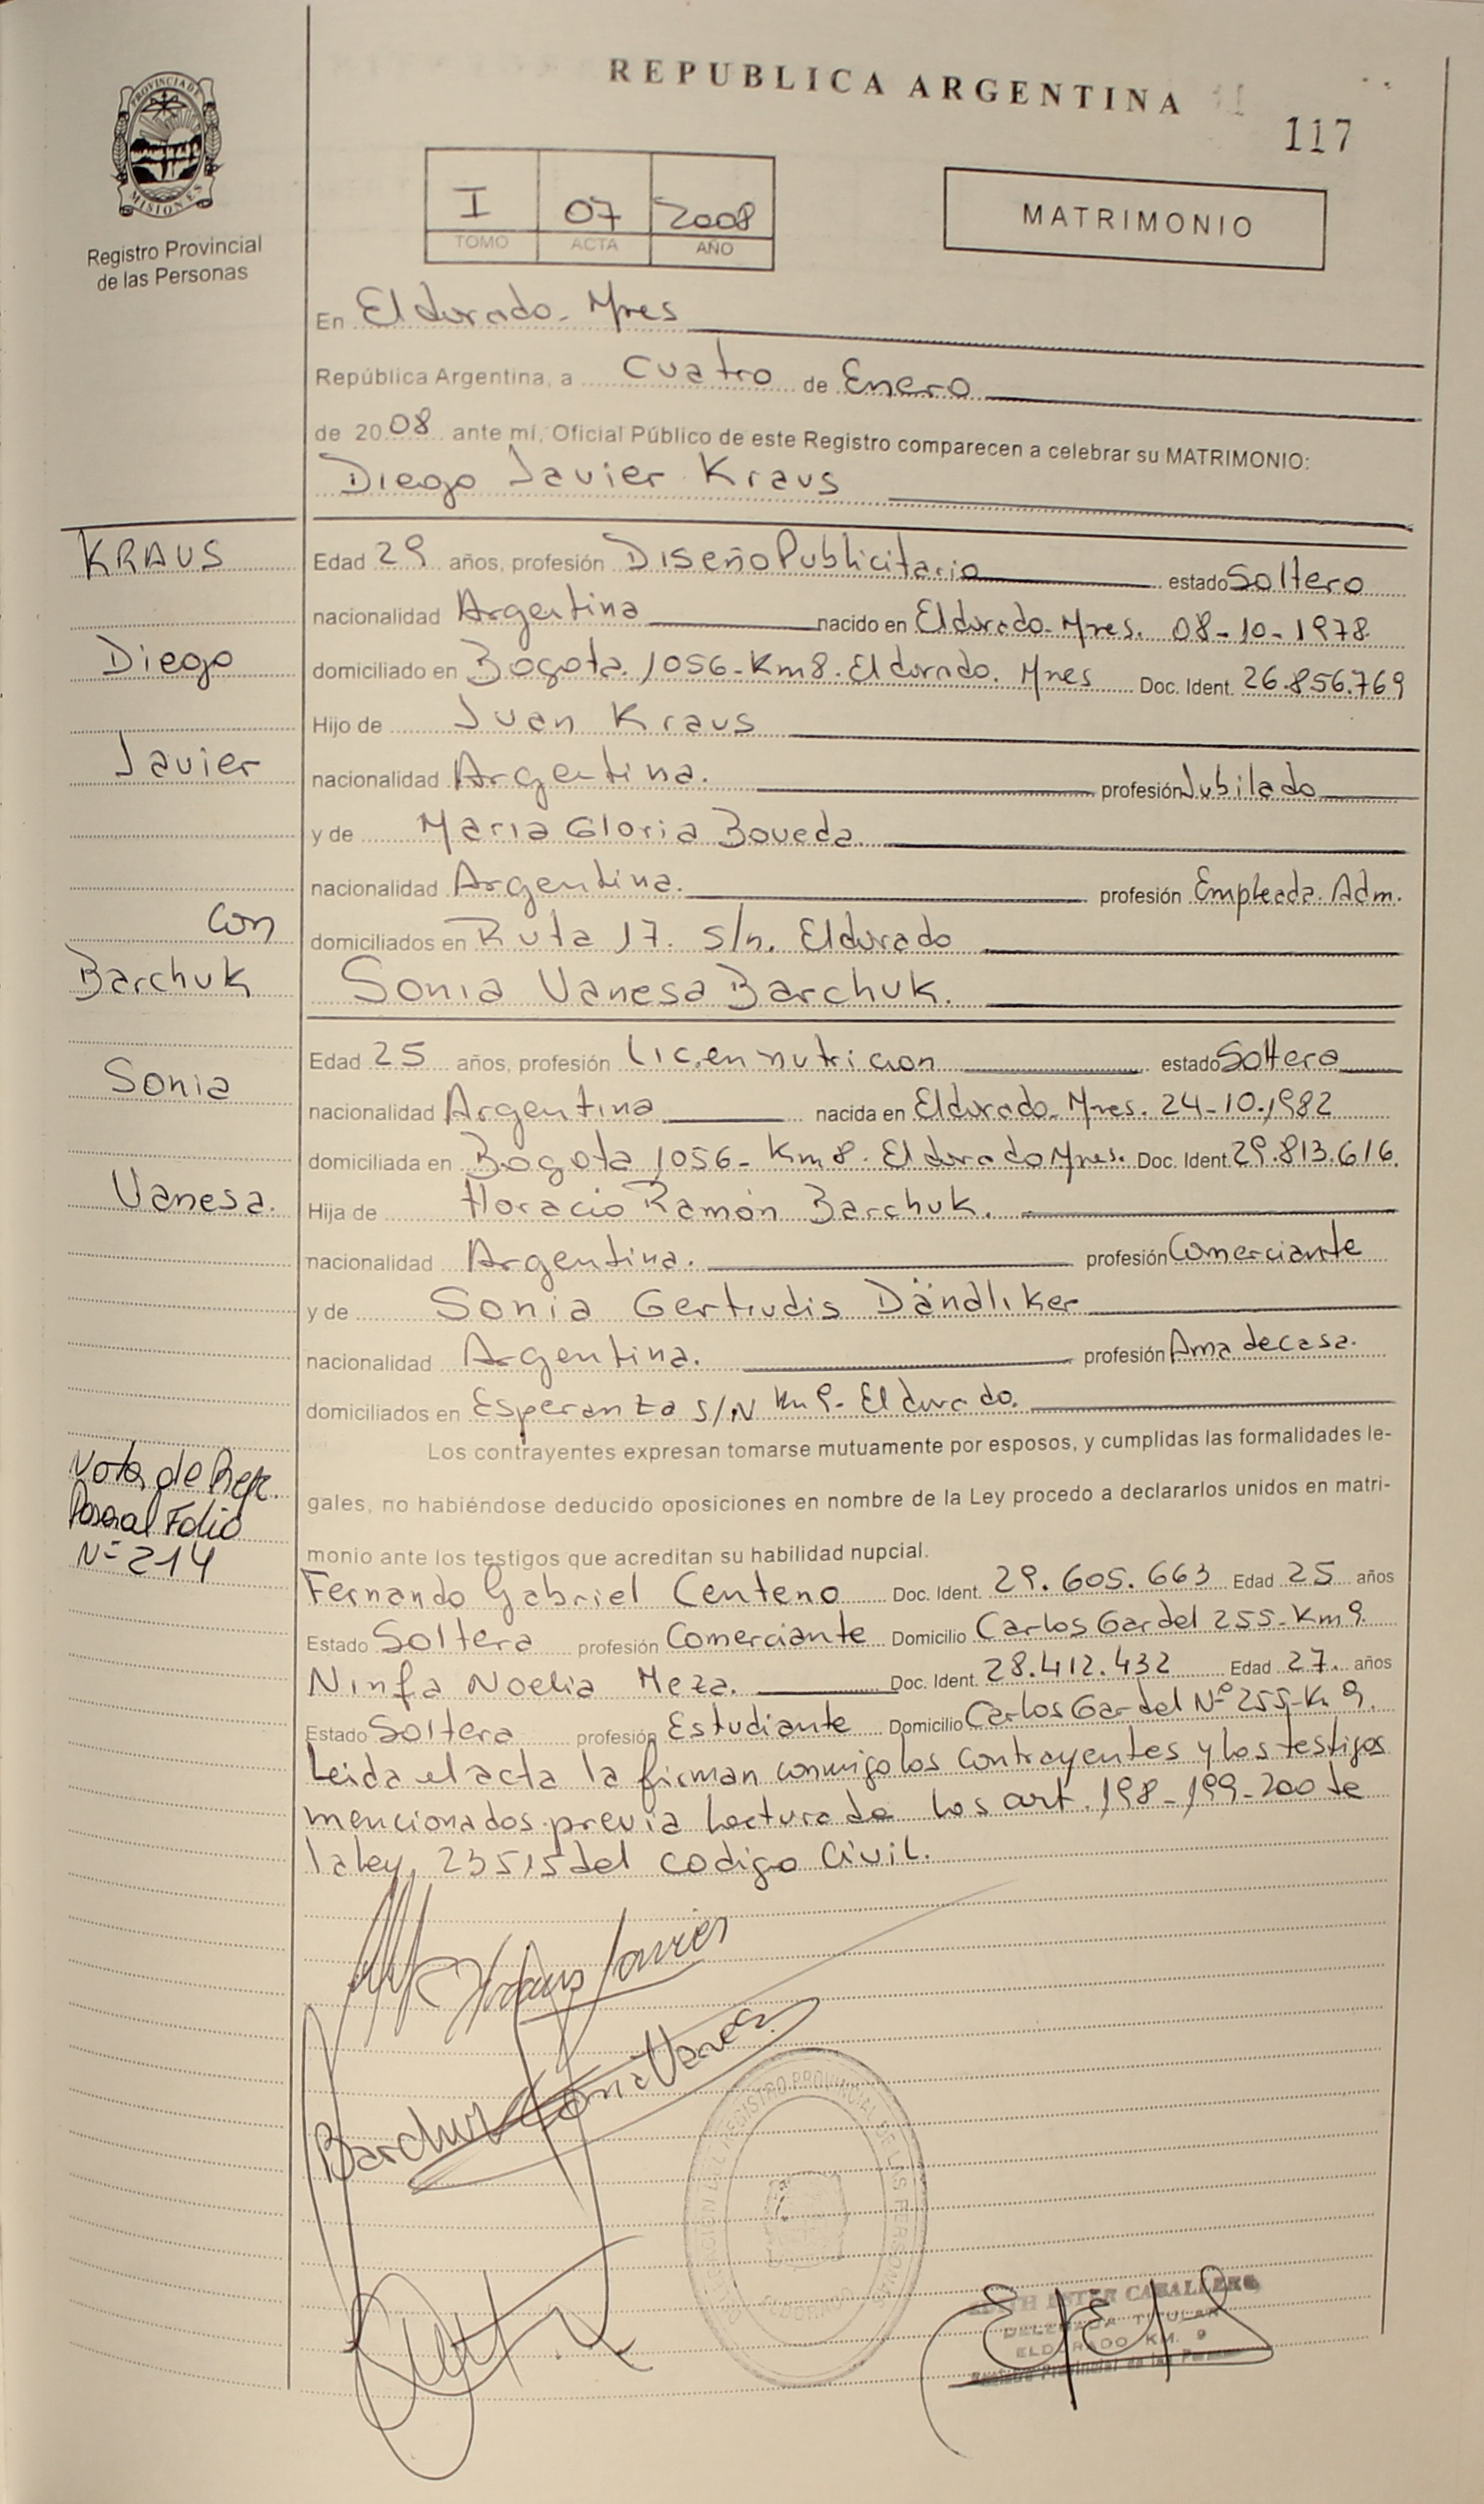 REPUBLICA ARGENTINA
117
PROVINCIA DE
MISIONES
Registro Provincial
de las Personas
I 07 2008
TOMO ACTA AÑO
MATRIMONIO
En Eldorado - Mnes
República Argentina, a cuatro de Enero
de 2008 ante mí, Oficial Público de este Registro comparecen a celebrar su MATRIMONIO:
Diego Javier Kraus
KRAUS
Diego
Javier
Con
Barchuk
Sonia
Vanesa.
Edad 29 años, profesión Diseño Publicitario estado Soltero
nacionalidad Argentina nacido en Eldorado - Mnes. 08-10-1978
domiciliado en Bogota. 1056 - Km 8. Eldorado. Mnes Doc. Ident. 26.856.769
Hijo de Juan Kraus
nacionalidad Argentina. profesión Jubilado
y de Maria Gloria Boveda.
nacionalidad Argentina. profesión Empleada. Adm.
domiciliados en Ruta 17. s/n. Eldorado
Sonia Vanesa Barchuk.
Edad 25 años, profesión Lic. en nutricion estado Soltera
nacionalidad Argentina nacida en Eldorado - Mnes. 24-10-1982
domiciliada en Bogota 1056 - Km 8. Eldorado Mnes. Doc. Ident. 29.813.616.
Hija de Horacio Ramón Barchuk.
nacionalidad Argentina. profesión Comerciante
y de Sonia Gertrudis Dändliker
nacionalidad Argentina. profesión Ama de casa.
domiciliados en Esperanza S/N Km 9 - Eldorado.
Los contrayentes expresan tomarse mutuamente por esposos, y cumplidas las formalidades le-
gales, no habiéndose deducido oposiciones en nombre de la Ley procedo a declararlos unidos en matri-
monio ante los testigos que acreditan su habilidad nupcial.
Nota de
Folio
Nº 214
Fernando Gabriel Centeno Doc. Ident. 29.605.663 Edad 25 años
Estado Soltera profesión Comerciante Domicilio Carlos Gardel 255 - Km 9.
Ninfa Noelia Meza. Doc. Ident. 28.412.432 Edad 27. años
Estado Soltera profesión Estudiante Domicilio Carlos Gardel Nº 255 - K. 9.
Leida el acta la firman conmigo los contrayentes y los testigos
mencionados previa lectura de los art. 198 - 199 - 200 de
la ley. 23515 del codigo Civil.
Kraus Javier
Barchuk Sonia Vanesa
DELEGACION DEL REGISTRO PROVINCIAL DE LAS PERSONAS
ELDORADO
EDITH ESTER CABALLERO
DELEGADA TITULAR
ELDORADO KM. 9
Registro Provincial de las Personas